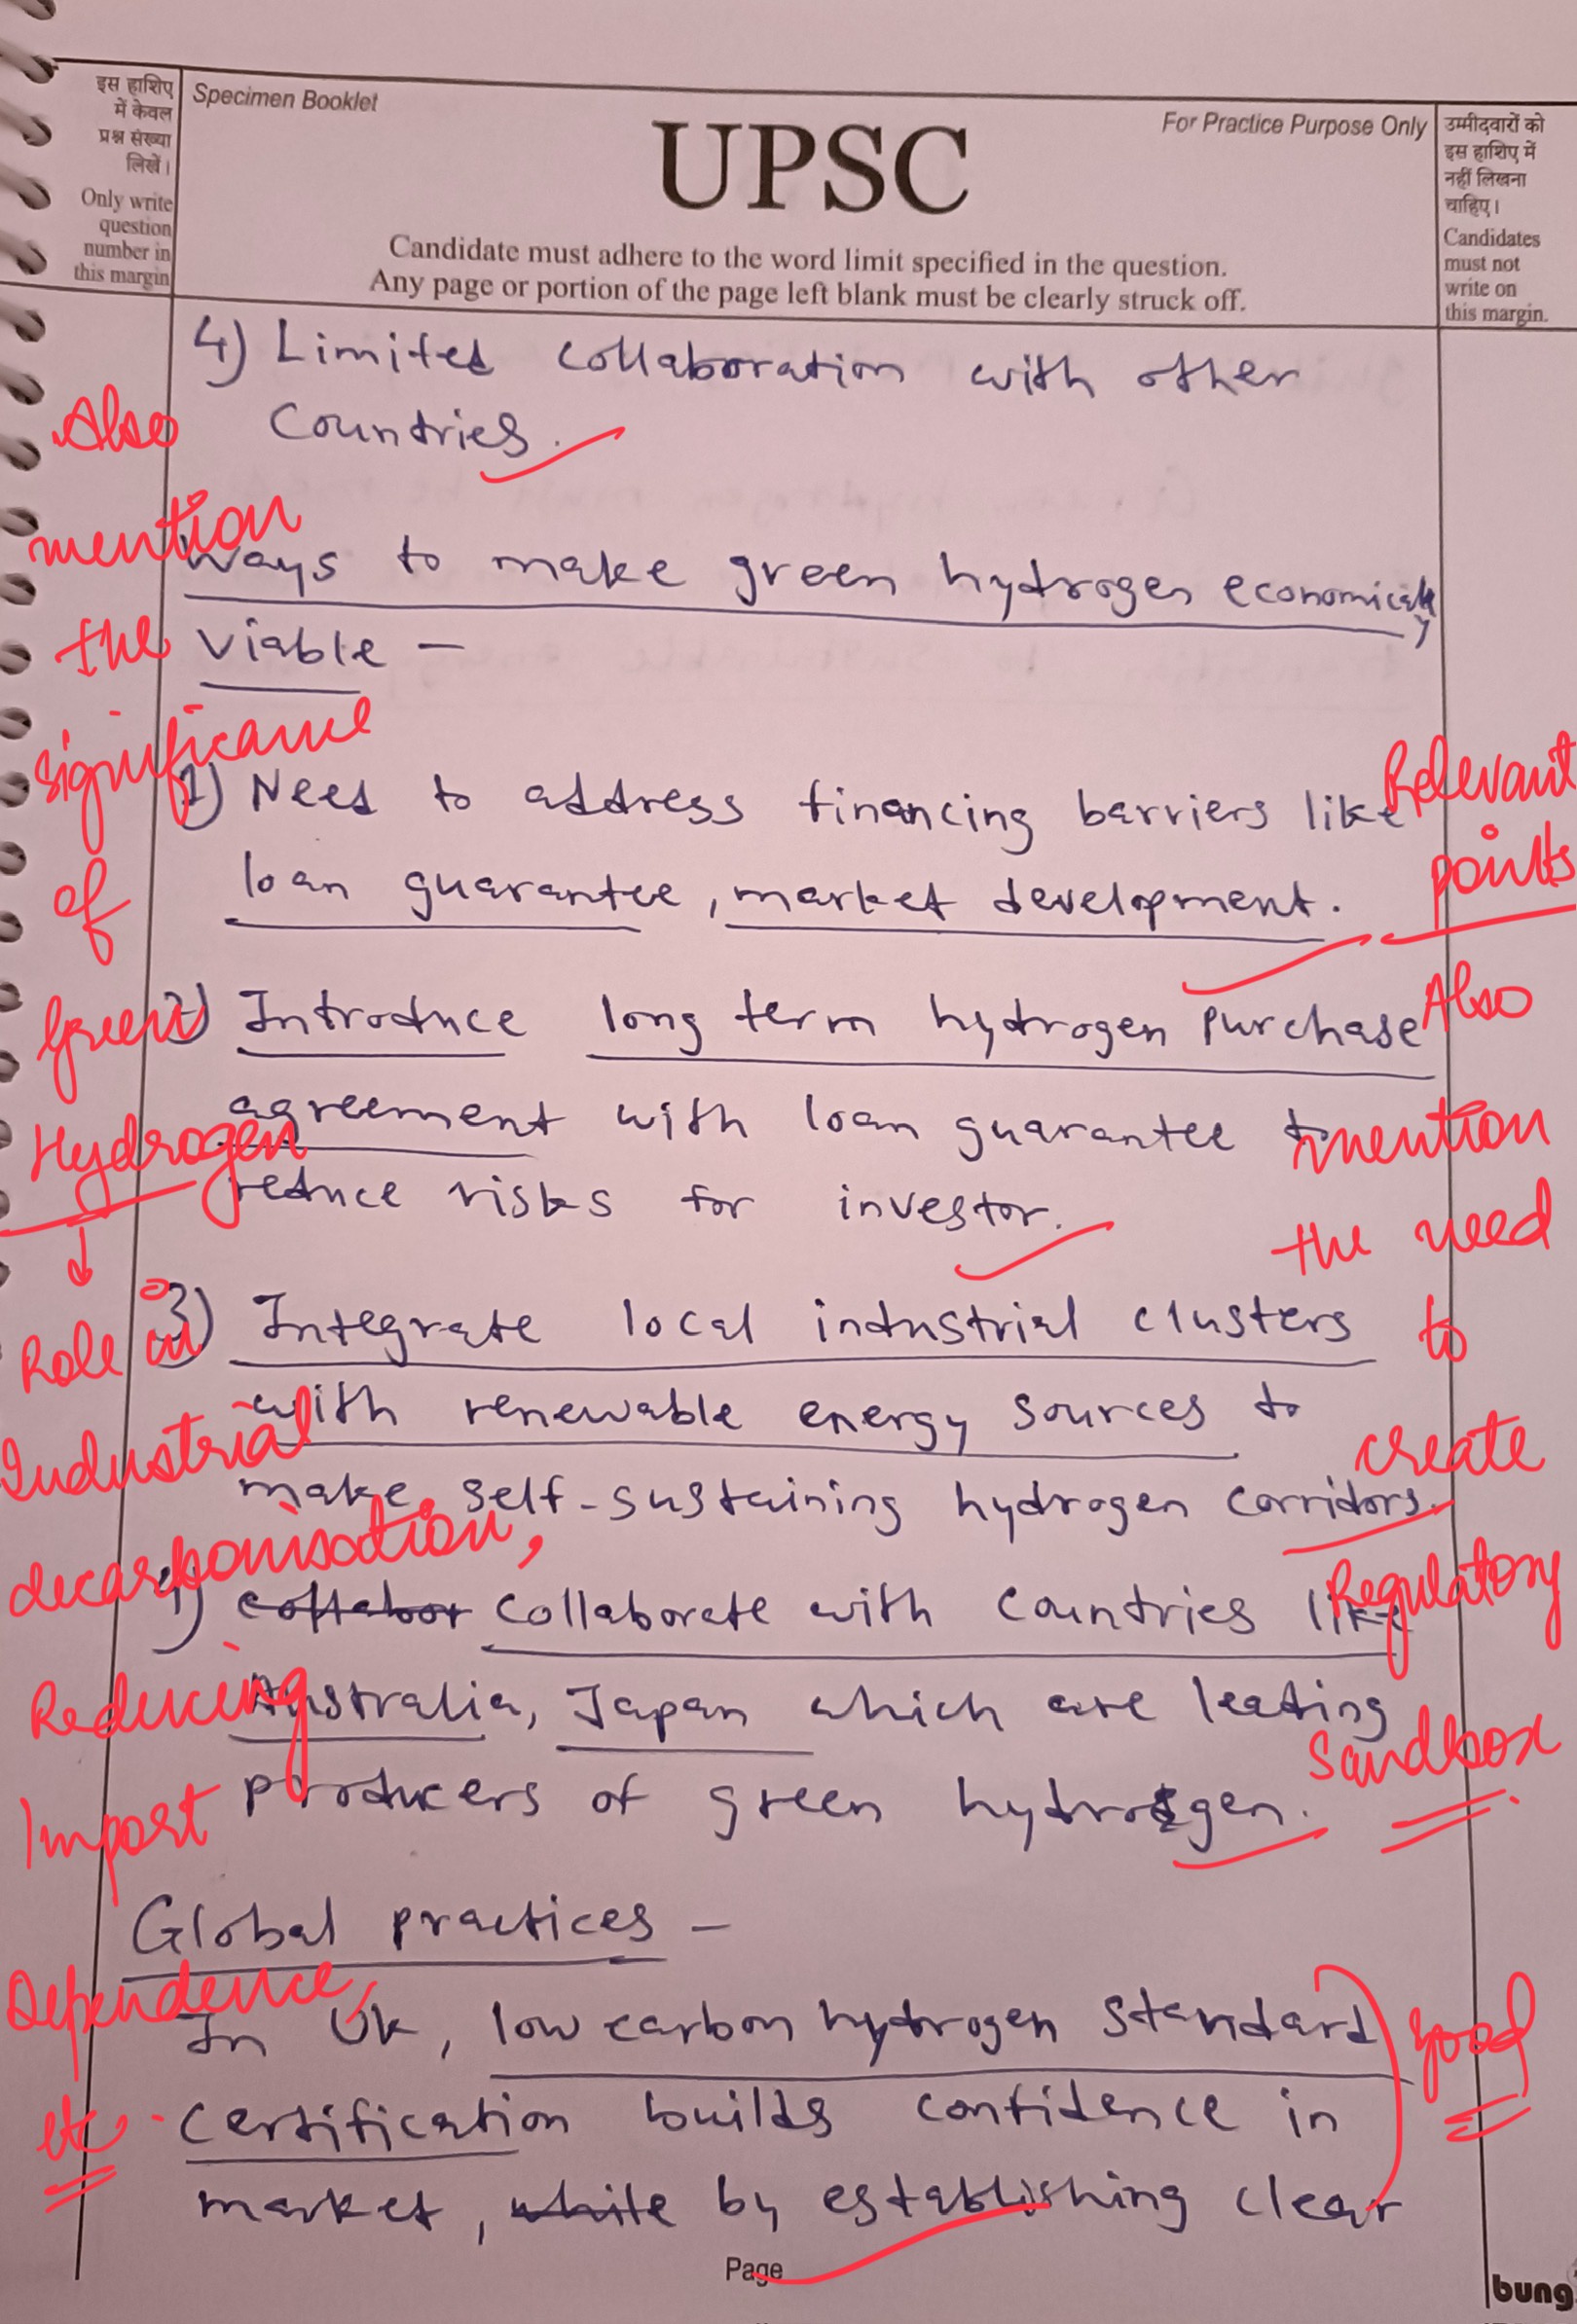 इस हाशिए
में केवल
प्रश्न संख्या
लिखें।
Only write
question
number in
this margin
Specimen Booklet
For Practice Purpose Only
UPSC
Candidate must adhere to the word limit specified in the question.
Any page or portion of the page left blank must be clearly struck off.
उम्मीदवारों को
इस हाशिए में
नहीं लिखना
चाहिए।
Candidates
must not
write on
this margin.
4) Limited collaboration with other
Countries.
Ways to make green hydrogen economically
viable -
1) Need to address financing barriers like
loan guarantee, market development.
2) Introduce long term hydrogen purchase
agreement with loan guarantee to
reduce risks for investor.
3) Integrate local industrial clusters
with renewable energy sources to
make self-sustaining hydrogen corridors.
4) collabor collaborate with countries like
Australia, Japan which are leading
producers of green hydrogen.
Global practices -
In UK, low carbon hydrogen standard
certification builds confidence in
market, while by establishing clear
Also
mention
the
significance
of
Green
Hydrogen
↓
Role in
Industrial
decarbonisation,
Reducing
Import
Dependence,
etc.
Relevant
points
Also
mention
the need
to
create
Regulatory
Sandbox.
Good
Page
bung